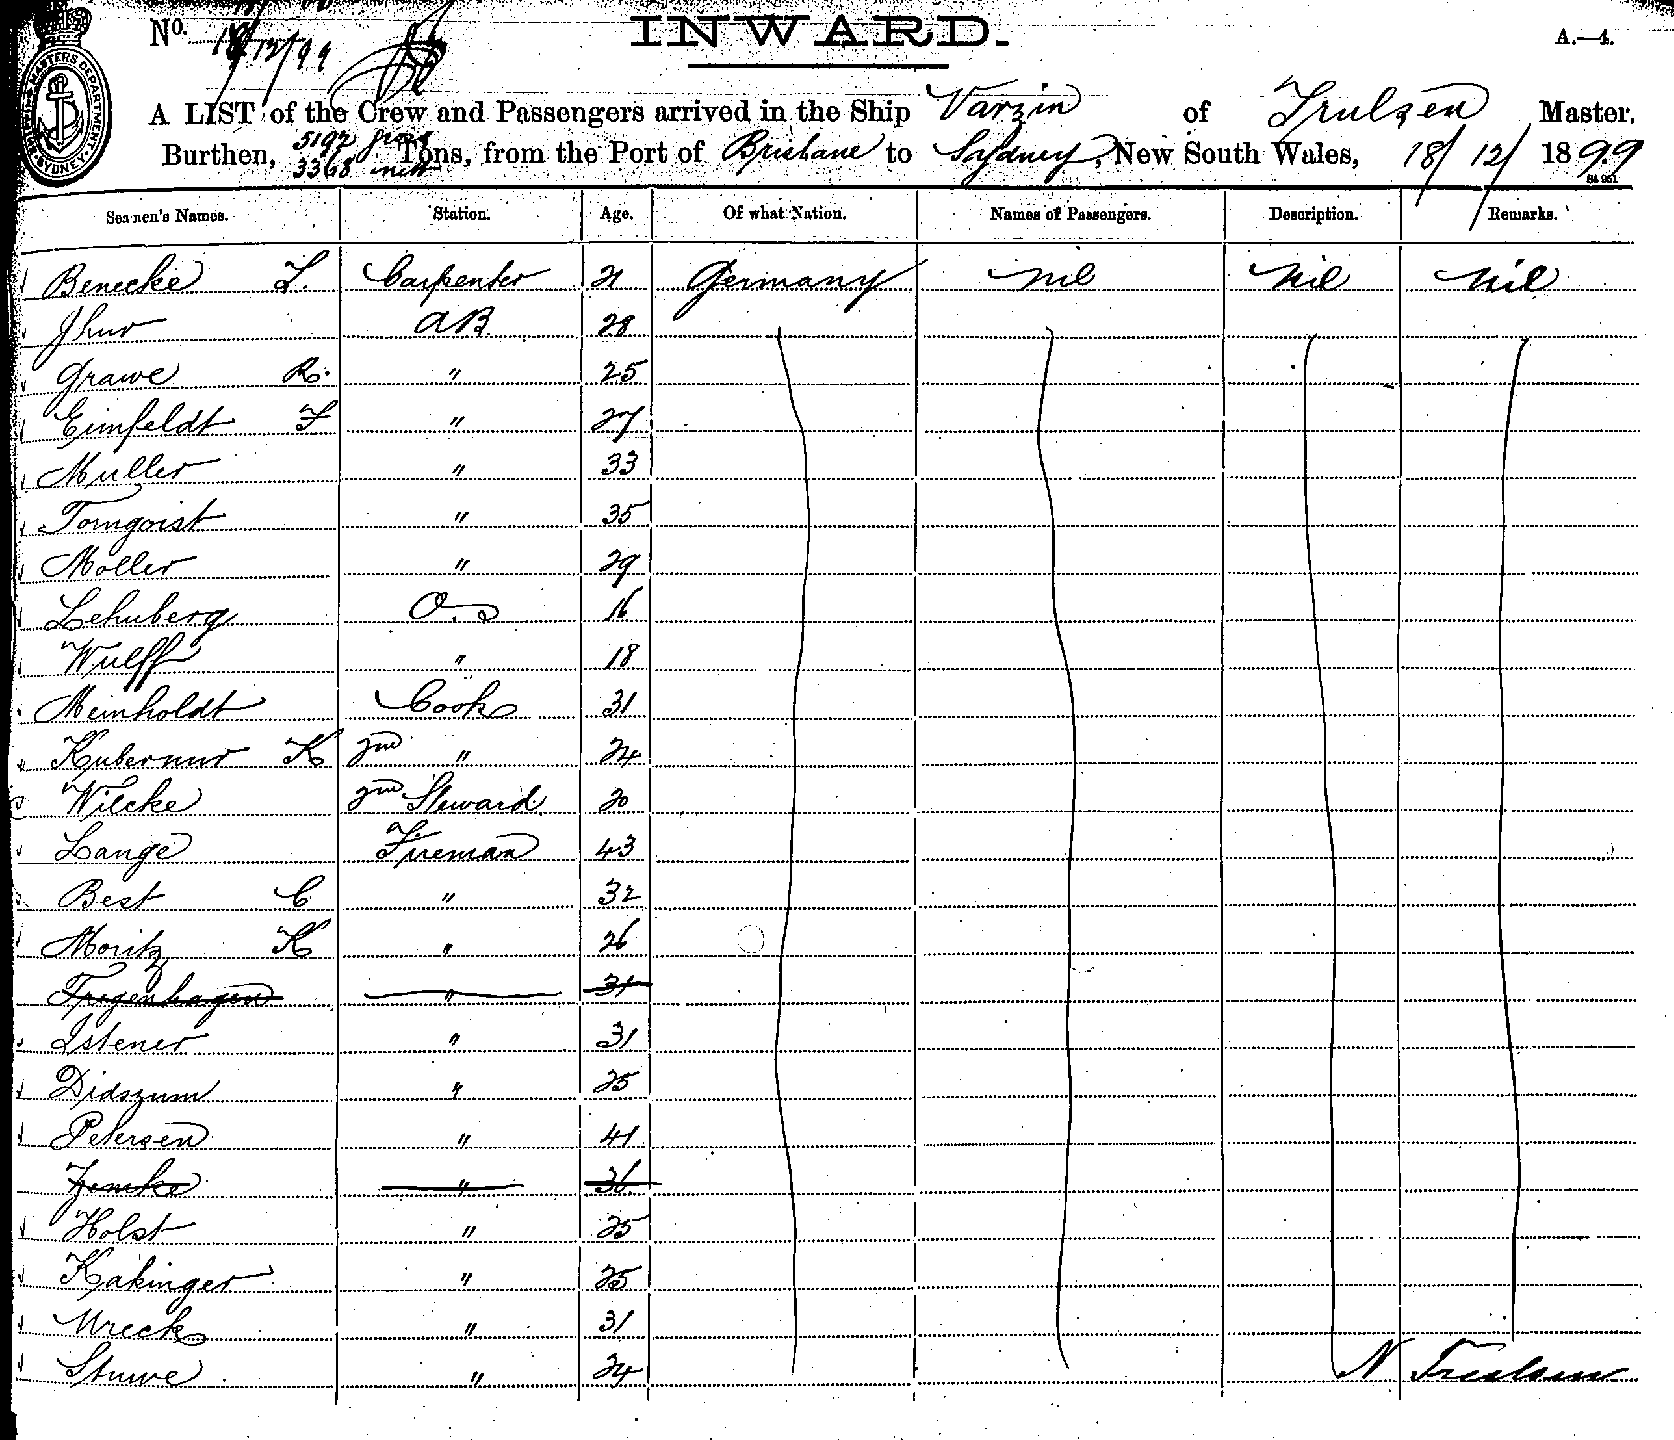 No. 18/12/99
INWARD.
A.—4.
SHIPPING MASTERS DEPARTMENT SYDNEY
A LIST of the Crew and Passengers arrived in the Ship Varzin of Trulsen Master,
Burthen, 5192 gross 3368 nett Tons, from the Port of Brisbane to Sydney, New South Wales, 18/12/1899
Seamen's Names. Station. Age. Of what Nation. Names of Passengers. Description. Remarks.
Benecke L. Carpenter 21 Germany nil nil nil
AB 28
Grawe R. " 25
Eimfeldt F " 27
Muller " 33
Tornqoist " 35
Moller " 29
Lehuberg O.S 16
Wulff " 18
Meinholdt Cook 31
K 2nd " 24
Wilcke 2nd Steward 20
Lange Fireman 43
Best C " 32
Moritz K " 26
Fregenhagen " 31
Istener " 31
Didszum " 25
Petersen " 41
Zemke " 36
Holst " 25
Kakinger " 25
Wreck " 31
Stuwe " 24 N Trulsen